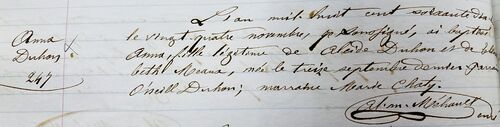 L'an mil huit cent soixante
Anna
Duhon
247
le vingt quatre novembre, je soussigné, ai baptisé
Anna, fille légitime de Alcide Duhon et de
beth Meaux, née le treize septembre dernier parrain
Oneill Duhon; marraine Marie